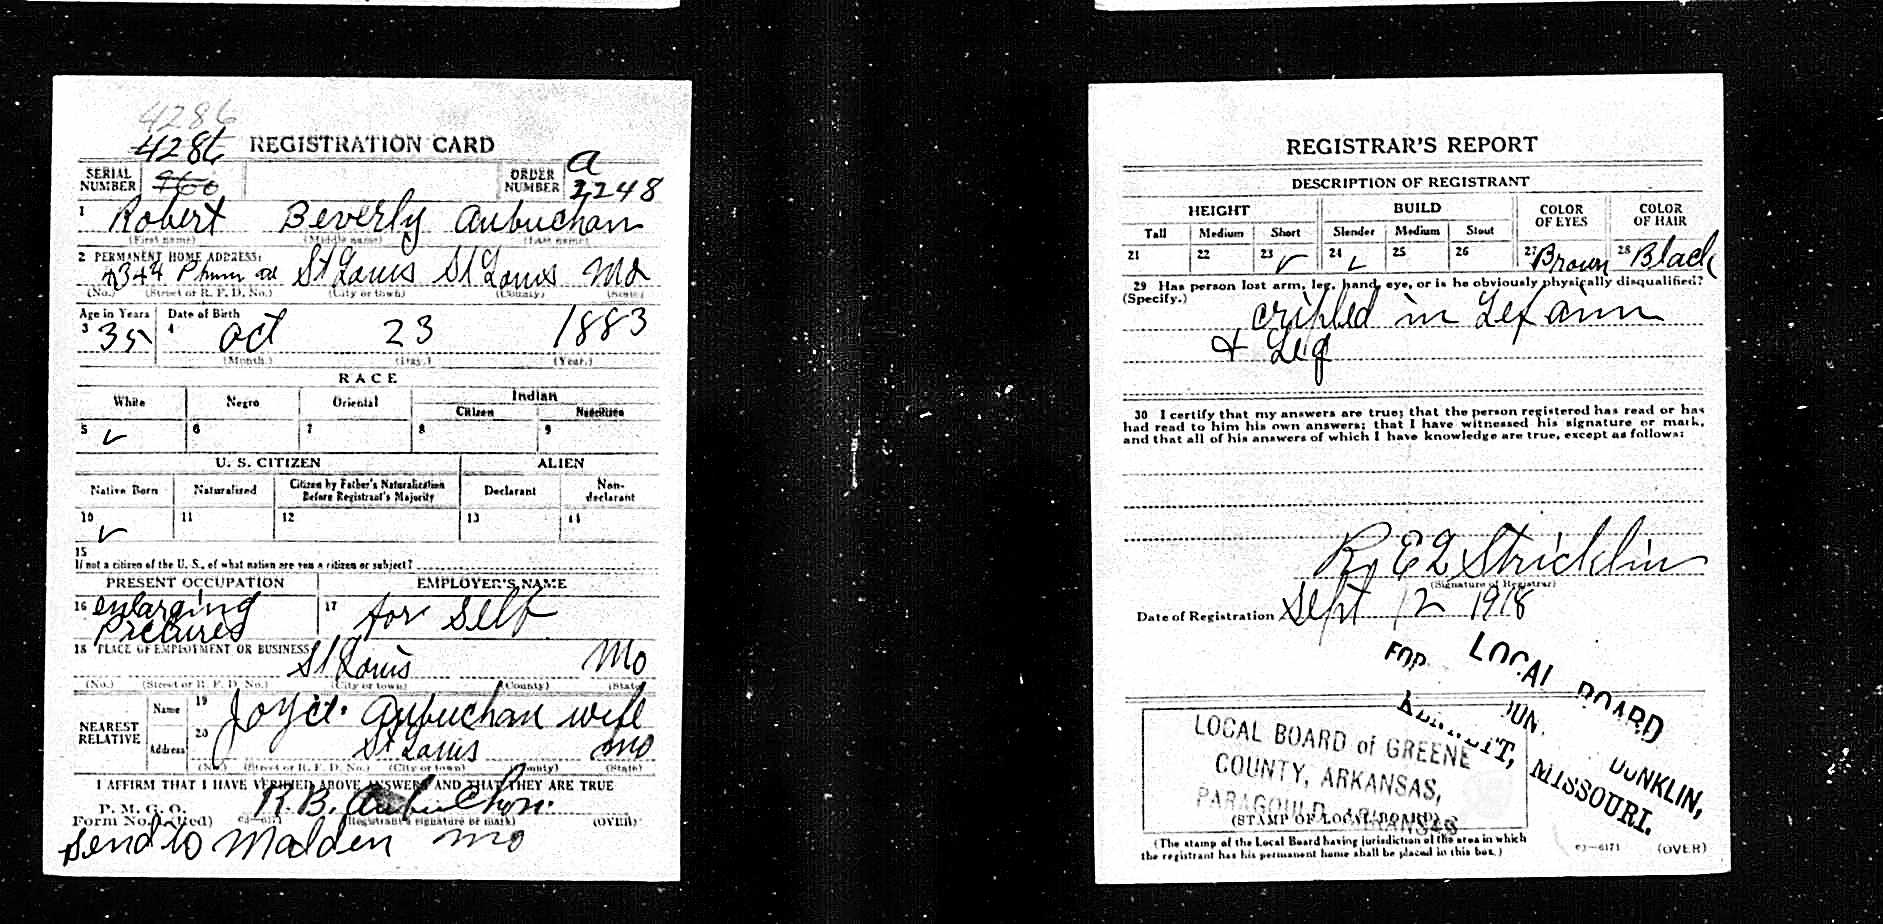 4286
4286 REGISTRATION CARD
SERIAL NUMBER 9600 ORDER NUMBER A 2248
1 Robert Beverly Aubuchan
(First name) (Middle name) (Last name)
2 PERMANENT HOME ADDRESS:
St Louis St Louis Mo
(No.) (Street or R. F. D. No.) (City or town) (County) (State)
Age in Years Date of Birth
3 35 4 Oct 23 1883
(Month.) (Day.) (Year.)
RACE
White Negro Oriental Indian
Citizen Noncitizen
5 ✓ 6 7 8 9
U. S. CITIZEN ALIEN
Native Born Naturalized Citizen by Father's Naturalization Before Registrant's Majority Declarant Non-declarant
10 ✓ 11 12 13 14
15
If not a citizen of the U. S., of what nation are you a citizen or subject?
PRESENT OCCUPATION EMPLOYER'S NAME
16 enlarging 17 for self
Pictures
18 PLACE OF EMPLOYMENT OR BUSINESS:
St Louis Mo
(No.) (Street or R. F. D. No.) (City or town) (County) (State)
NEAREST RELATIVE Name 19 Aubuchan wife
Address 20 St Louis Mo
(No.) (Street or R. F. D. No.) (City or town) (County) (State)
I AFFIRM THAT I HAVE VERIFIED ABOVE ANSWERS AND THAT THEY ARE TRUE
P. M. G. O.
Form No. 1 (Red) 03—6171 R. B. Aubuchon.
(Registrant's signature or mark) (OVER)
Send to Malden Mo
REGISTRAR'S REPORT
DESCRIPTION OF REGISTRANT
HEIGHT BUILD COLOR OF EYES COLOR OF HAIR
Tall Medium Short Slender Medium Stout
21 22 23 ✓ 24 ✓ 25 26 27 Brown 28 Black
29 Has person lost arm, leg, hand, eye, or is he obviously physically disqualified?
(Specify.)
cripled in Lef arm
+ Leg
30 I certify that my answers are true; that the person registered has read or has
had read to him his own answers; that I have witnessed his signature or mark,
and that all of his answers of which I have knowledge are true, except as follows:
R E L Stricklin
(Signature of Registrar)
Date of Registration Sept 12 1918
LOCAL BOARD
FOR DUNKLIN,
KENNETT, MISSOURI.
LOCAL BOARD of GREENE
COUNTY, ARKANSAS,
PARAGOULD, ARKANSAS
(STAMP OF LOCAL BOARD)
(The stamp of the Local Board having jurisdiction of the area in which
the registrant has his permanent home shall be placed in this box.)
03—6171 (OVER)